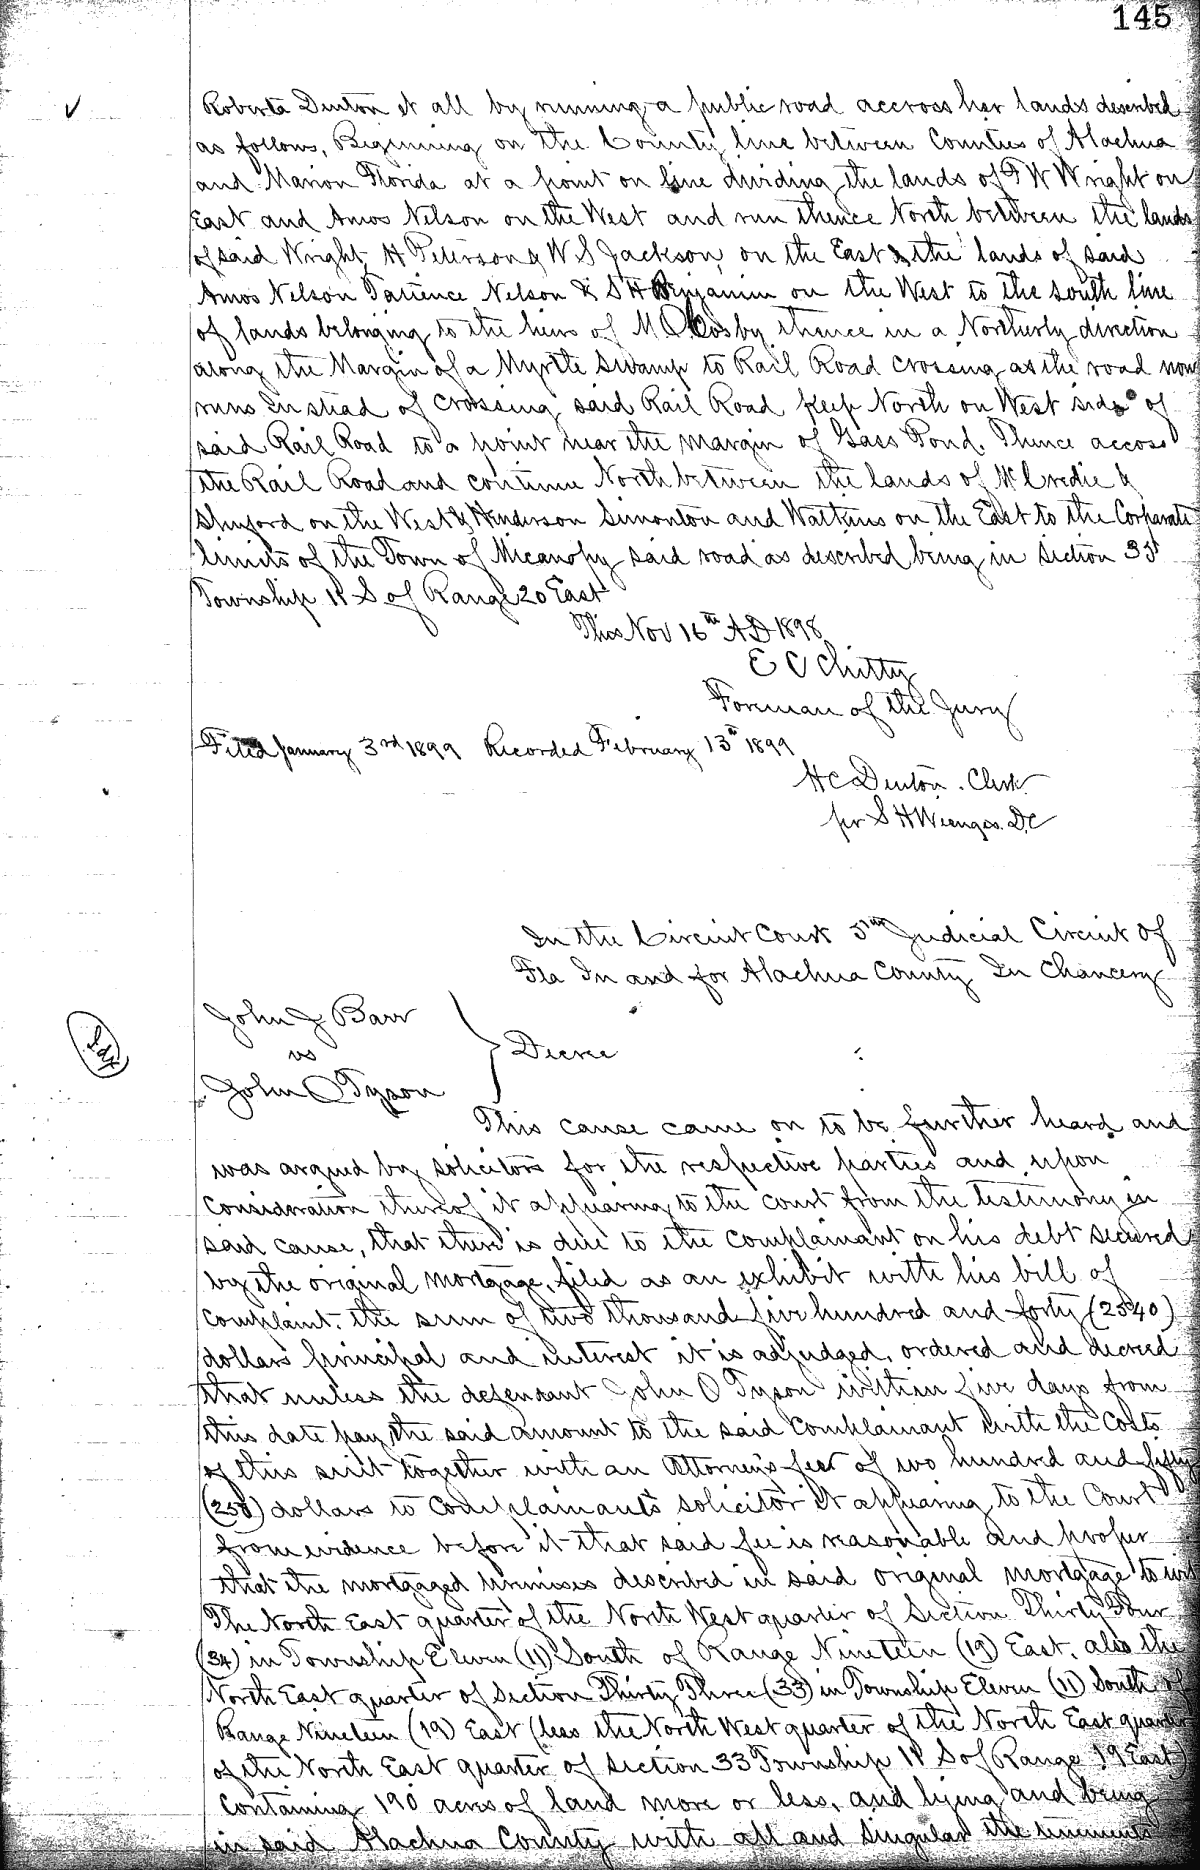 145
Roberta Denton et all by running a public road accross her lands described
as follows, Beginning on the County line between Counties of Alachua
and Marion Florida at a point on line dividing the lands of F W Wright on
East and Amos Nelson on the West and run thence North between the lands
of said Wright, H Peterson & W S Jackson, on the East & the lands of said
Amos Nelson Patience Nelson & S H Benjamin on the West to the south line
of lands belonging to the heirs of M O Cosby thence in a Northerly direction
along the Margin of a Myrtle Swamp to Rail Road Crossing as the road now
runs Instead of crossing said Rail Road keep North on West side of
said Rail Road to a point near the margin of Gass Pond. Thence accoss
the Rail Road and continue North between the lands of McCredie &
Shuford on the West & Henderson Simonton and Watkins on the East to the Corporate
limits of the Town of Micanopy said road as described being in Section 35
Township 11 S of Range 20 East
This Nov 16th AD 1898
E C Chitty
Foreman of the Jury
Filed January 3rd 1899 Recorded February 13th 1899
H C Denton. Clerk
per S H Wienges. D.C
In the Circuit Court 5th Judicial Circuit of
Fla In and for Alachua County In Chancery
John J Barr
vs
John O Tyson
Decree
This cause came on to be further heard and
was argued by solicitors for the respective parties and upon
consideration thereof it appearing to the court from the testimony in
said cause, that there is due to the complainant on his debt secured
by the original mortgage, filed as an exhibit with his bill of
complaint. the sum of two thousand five hundred and forty (2540)
dollars principal and interest it is adjudged, ordered and decreed
that unless the defendant John O Tyson within five days from
this date pay the said amount to the said Complainant with the Costs
of this suit together with an Attorney's fee of two hundred and fifty
(250) dollars to Complainant's solicitor it appearing to the Court
from evidence before it that said fee is reasonable and proper
that the mortgaged premises described in said original mortgage to wit
The North East quarter of the North West quarter of Section Thirty Four
(34) in Township Eleven (11) South of Range Nineteen (19) East. also the
North East quarter of Section Thirty Three (33) in Township Eleven (11) South of
Range Nineteen (19) East (less the North West quarter of the North East quarter
of the North East quarter of Section 33 Township 11 S of Range 19 East)
Containing 190 acres of land more or less, and lying and being
in said Alachua County with all and singular the tenements